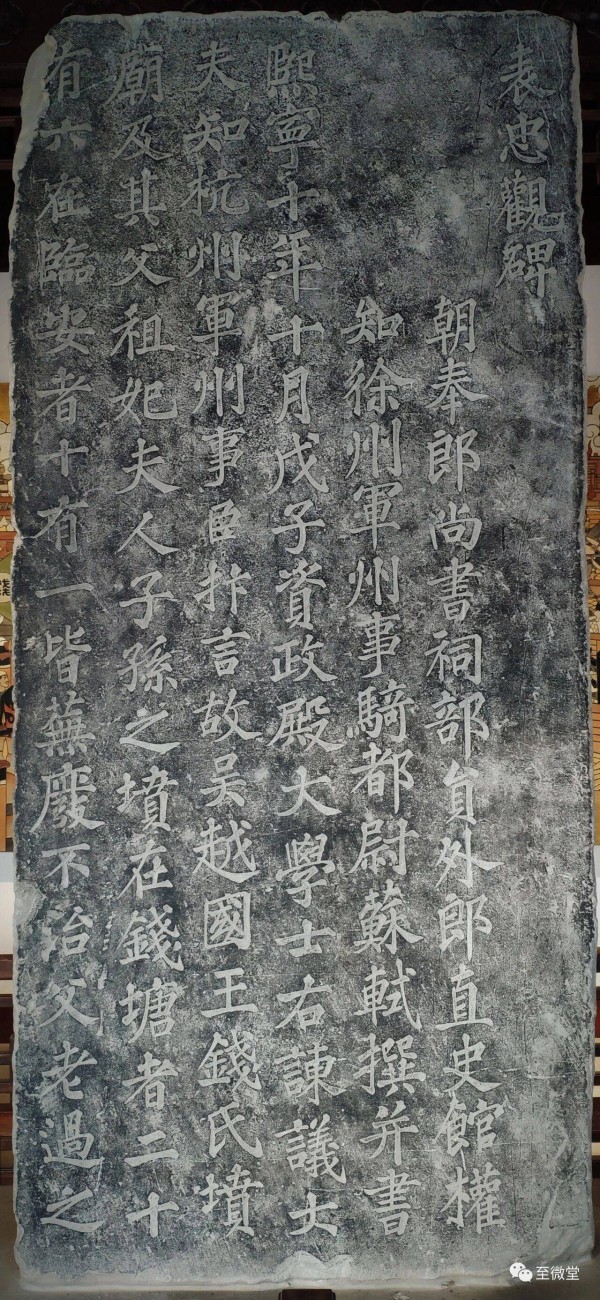 表忠觀碑
朝奉郎尚書祠部員外郎直史館權
知徐州軍州事騎都尉蘇軾撰并書
熙寧十年十月戊子資政殿大學士右諫議大
夫知杭州軍州事臣抃言故吳越國王錢氏墳
廟及其父祖妃夫人子孫之墳在錢塘者二十
有六在臨安者十有一皆蕪廢不治父老過之
至微堂